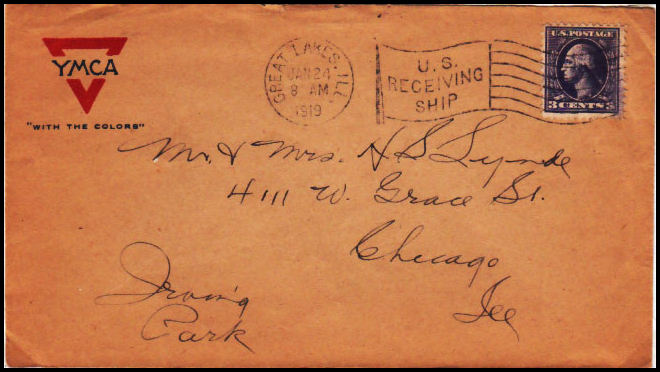 YMCA
"WITH THE COLORS"
GREAT LAKES, ILL.
JAN 24
8 AM
1919
U.S.
RECEIVING
SHIP
U.S. POSTAGE
3 CENTS 3
Mr. & Mrs. H S Lynde
4111 W. Grace St.
Chicago
Ill
Irving
Park